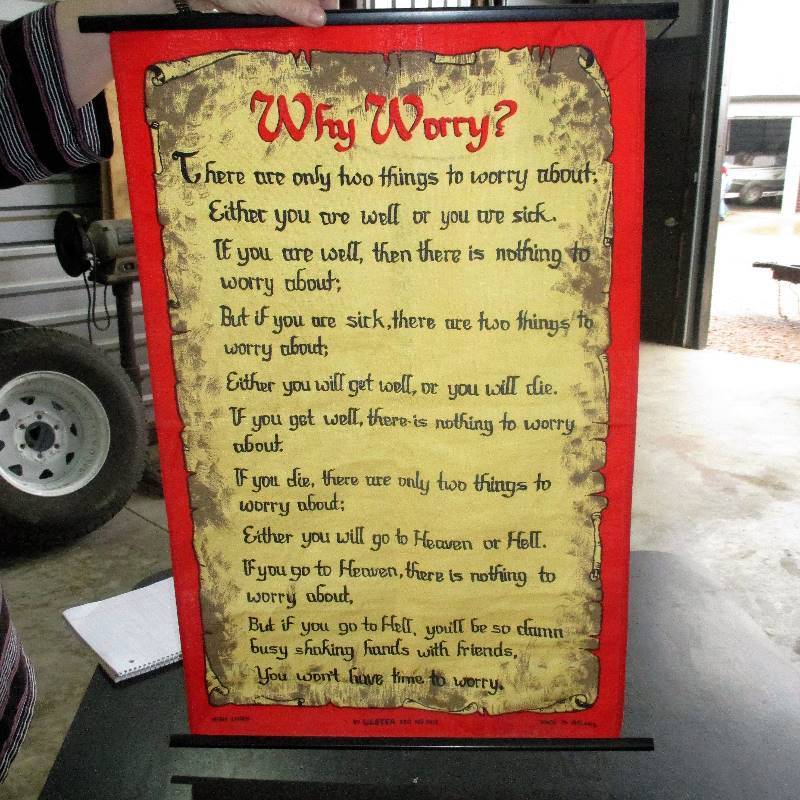 Why Worry?
There are only two things to worry about:
Either you are well or you are sick.
If you are well, then there is nothing to
worry about;
But if you are sick, there are two things to
worry about;
Either you will get well, or you will die.
If you get well, there is nothing to worry
about.
If you die, there are only two things to
worry about;
Either you will go to Heaven or Hell.
If you go to Heaven, there is nothing to
worry about,
But if you go to Hell, you'll be so damn
busy shaking hands with friends,
You won't have time to worry.
IRISH LINEN BY ULSTER MADE IN IRELAND